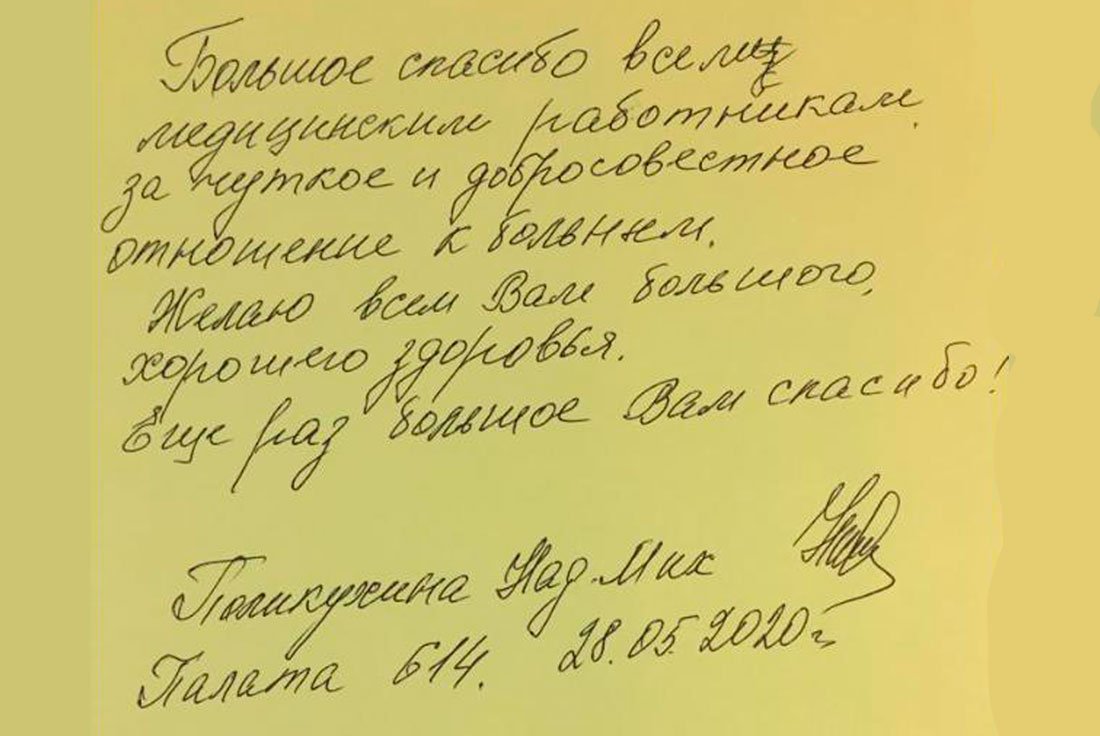 Большое спасибо всем
медицинским работникам
за чуткое и добросовестное
отношение к больным.
Желаю всем Вам большого,
хорошего здоровья.
Еще раз большое Вам спасибо!
Поликухина Над. Мих
Палата 614. 28.05.2020г.